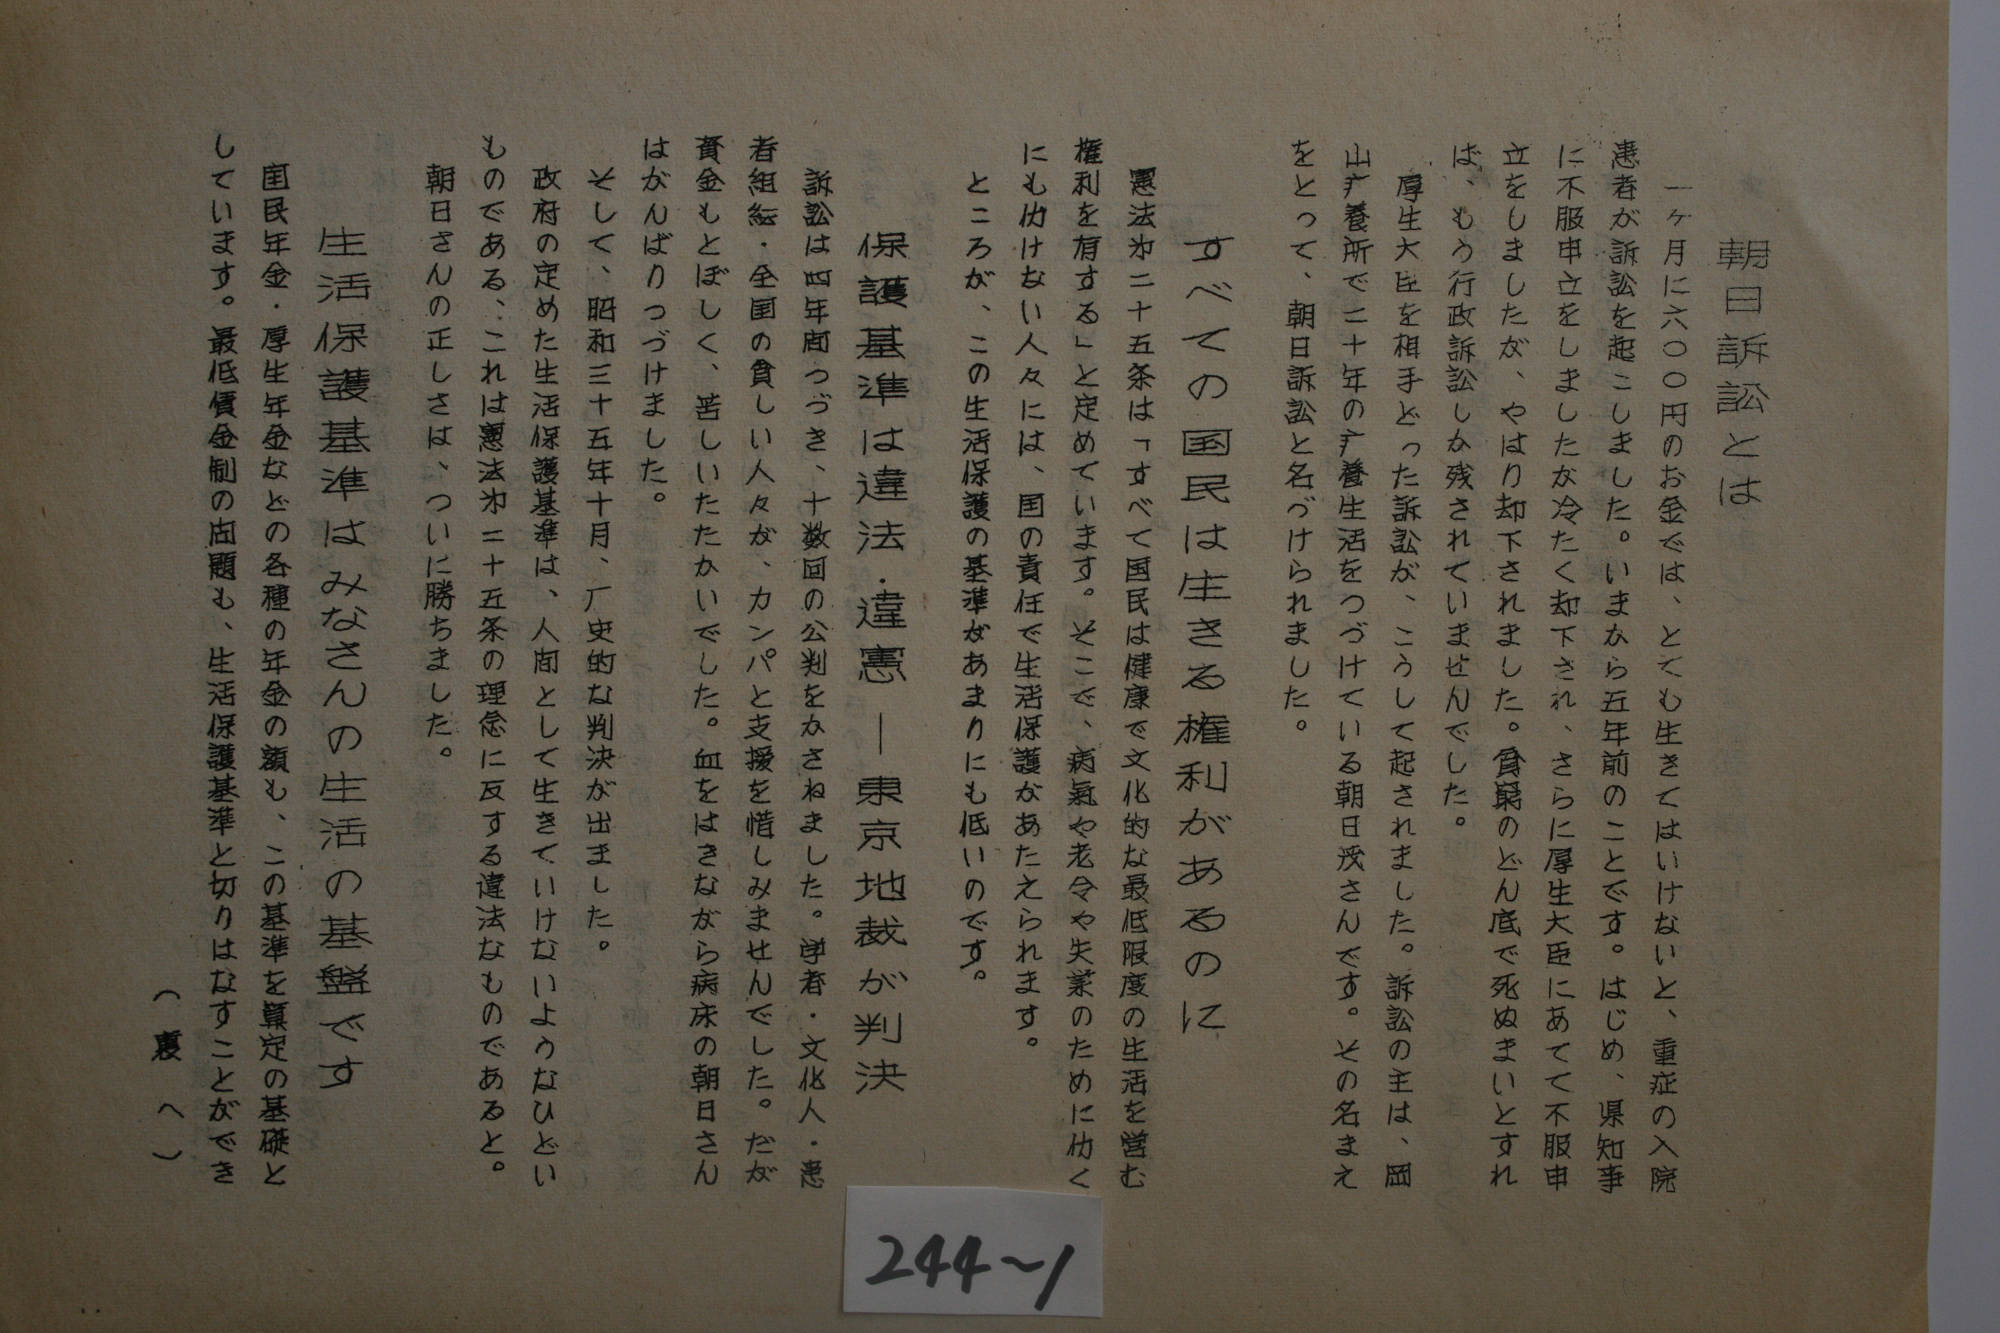 朝日訴訟とは
一ヶ月に六〇〇円のお金では、とても生きてはいけないと、重症の入院
患者が訴訟を起こしました。いまから五年前のことです。はじめ、県知事
に不服申立をしましたが冷たく却下され、さらに厚生大臣にあてて不服申
立をしましたが、やはり却下されました。貧窮のどん底で死ぬまいとすれ
ば、もう行政訴訟しか残されていませんでした。
厚生大臣を相手どった訴訟が、こうして起されました。訴訟の主は、岡
山疒養所で二十年の疒養生活をつづけている朝日茂さんです。その名まえ
をとって、朝日訴訟と名づけられました。
すべての国民は生きる権利があるのに
憲法才二十五条は「すべて国民は健康で文化的な最低限度の生活を営む
権利を有する」と定めています。そこで、病氣や老令や失業のために仂く
にも仂けない人々には、国の責任で生活保護があたえられます。
ところが、この生活保護の基準があまりにも低いのです。
保護基準は違法・違憲―東京地裁が判決
訴訟は四年間つづき、十数回の公判をかさねました。学者・文化人・患
者組織・全国の貧しい人々が、カンパと支援を惜しみませんでした。だが
資金もとぼしく、苦しいたたかいでした。血をはきながら病床の朝日さん
はがんばりつづけました。
そして、昭和三十五年十月、厂史的な判決が出ました。
政府の定めた生活保護基準は、人間として生きていけないようなひどい
ものである、これは憲法才二十五条の理念に反する違法なものであると。
朝日さんの正しさは、ついに勝ちました。
生活保護基準はみなさんの生活の基盤です
国民年金・厚生年金などの各種の年金の額も、この基準を算定の基礎と
しています。最低賃金制の問題も、生活保護基準と切りはなすことができ
(裏へ)
244～1